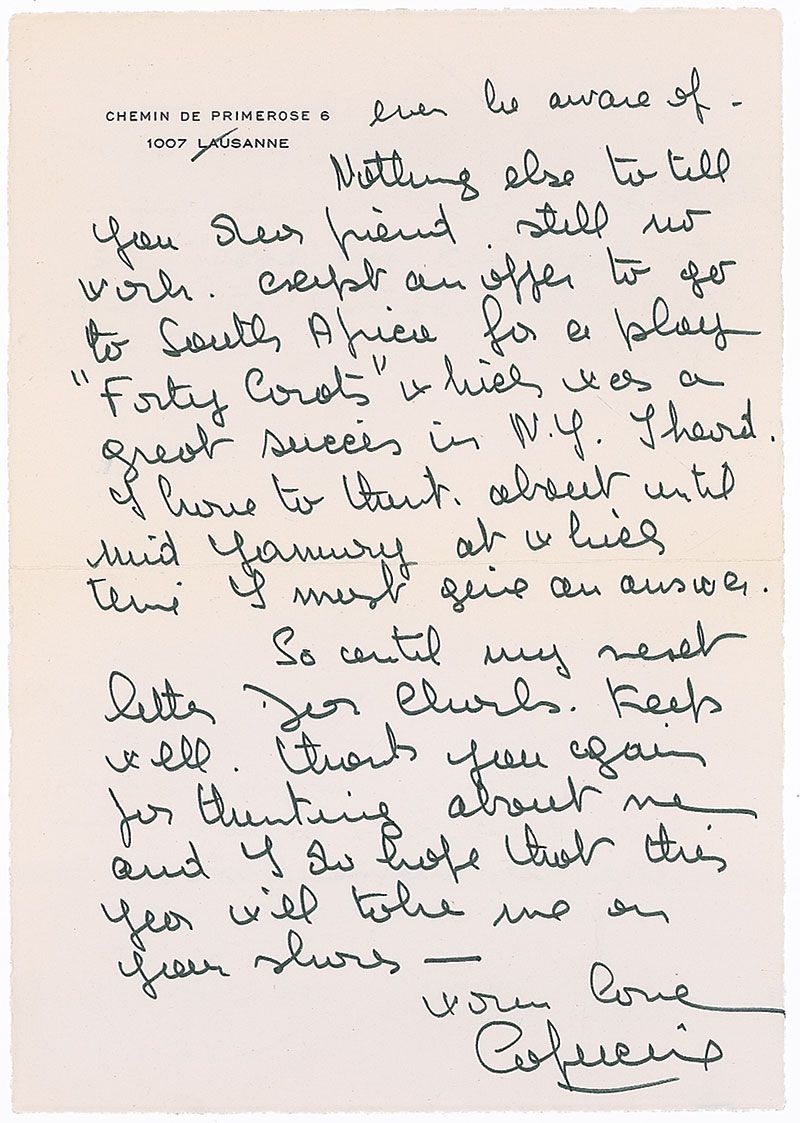 CHEMIN DE PRIMEROSE 6
1007 LAUSANNE
even be aware of -
Nothing else to tell
you dear friend. still no
work. except an offer to go
to South Africa for a play
"Forty Carats" which was a
great succès in N.Y. I heard.
I have to think about until
mid January at which
time I must give an answer.
So until my next
letter Dear Charles. Keep
well. thank you again
for thinking about me
and I do hope that this
year will take me on
your shores —
warm love
Capucine